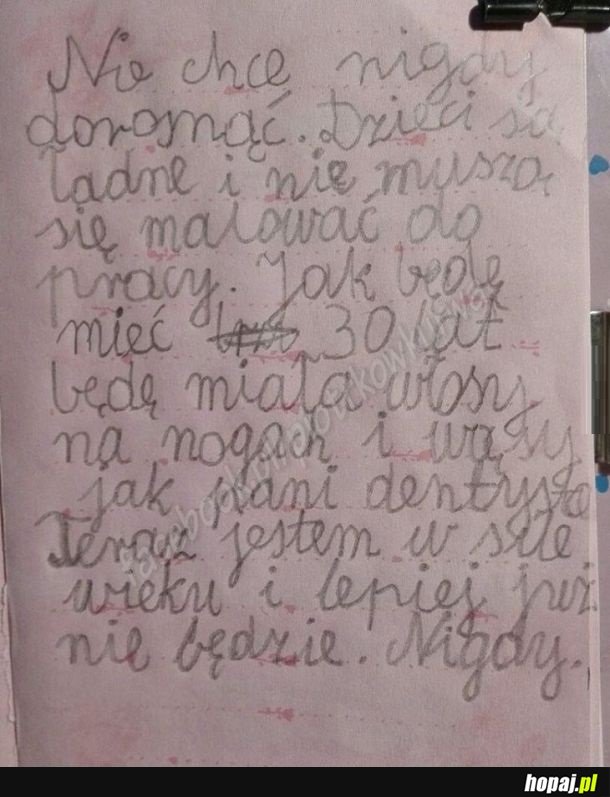 Nie chcę nigdy
dorosnąć. Dzieci są
ładne i nie muszą
się malować do
pracy. Jak będę
mieć 30 lat
będę miała włosy
na nogach i wąsy
jak pani dentysta
Teraz jestem w sile
wieku i lepiej już
nie będzie. Nigdy.
hopaj.pl